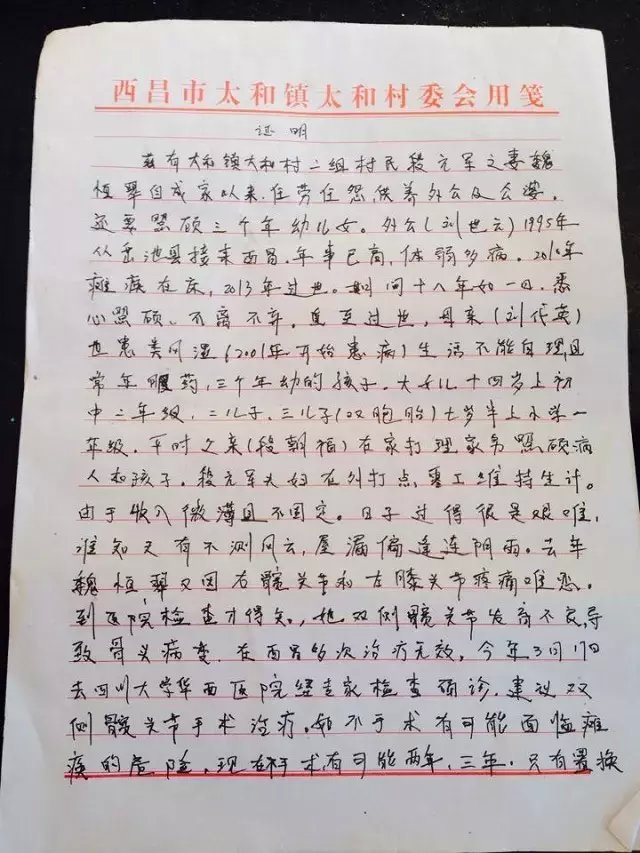 西昌市太和镇太和村委会用笺
证明
兹有太和镇太和村二组村民段元军之妻魏
恒翠自成家以来,任劳任怨,供养外公及公婆,
还要照顾三个年幼儿女。外公(刘世元)1995年
从岳池县接来西昌,年事已高,体弱多病。2010年
瘫痪在床,2013年过世。时间十八年如一日,悉
心照顾、不离不弃,直至过世,母亲(刘代英)
也患类风湿(2001年开始患病)生活不能自理,且
常年服药,三个年幼的孩子,大女儿十四岁上初
中二年级,二儿子、三儿子(双胞胎)七岁半上小学一
年级,平时父亲(段朝福)在家打理家务照顾病
人和孩子,段元军夫妇在外打点零工维持生计。
由于收入微薄且不固定。日子过得很是艰难,
谁知天有不测风云,屋漏偏逢连阴雨。去年
魏恒翠又因右髋关节和左膝关节疼痛难忍。
到医院检查才得知,她双侧髋关节发育不良,导
致骨头病变,在西昌多次治疗无效,今年3月17日
去四川大学华西医院经专家检查确诊,建议双
侧髋关节手术治疗,如不手术有可能面临瘫
痪的危险,现在手术,有可能两年、三年,只有置换